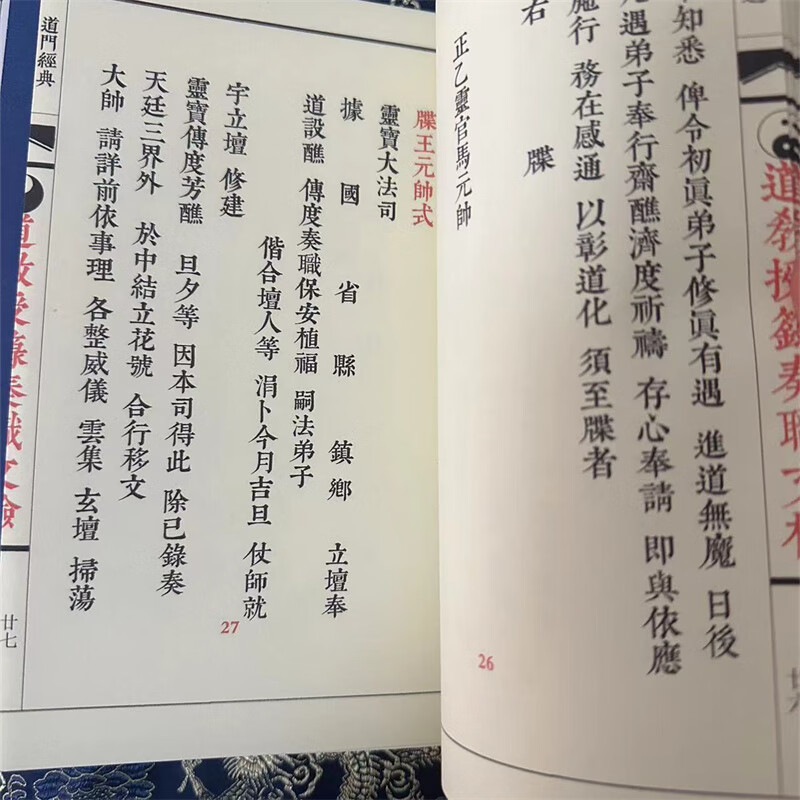 知悉 俾令初眞弟子修眞有遇 進道無魔 日後
遇弟子奉行齋醮濟度祈禱 存心奉請 即與依應
施行 務在感通 以彰道化 須至牒者
右 牒
正乙靈官馬元帥
26
牒王元帥式
靈寶大法司
據 國 省 縣 鎮 鄉 立壇奉
道設醮 傳度奏職保安植福 嗣法弟子
偕合壇人等 涓卜今月吉旦 仗師就
宇立壇 修建
靈寶傳度芳醮 旦夕等 因本司得此 除已錄奏
天廷三界外 於中結立花號 合行移文
大帥 請詳前依事理 各整威儀 雲集 玄壇 掃蕩
27
道門經典
廿七